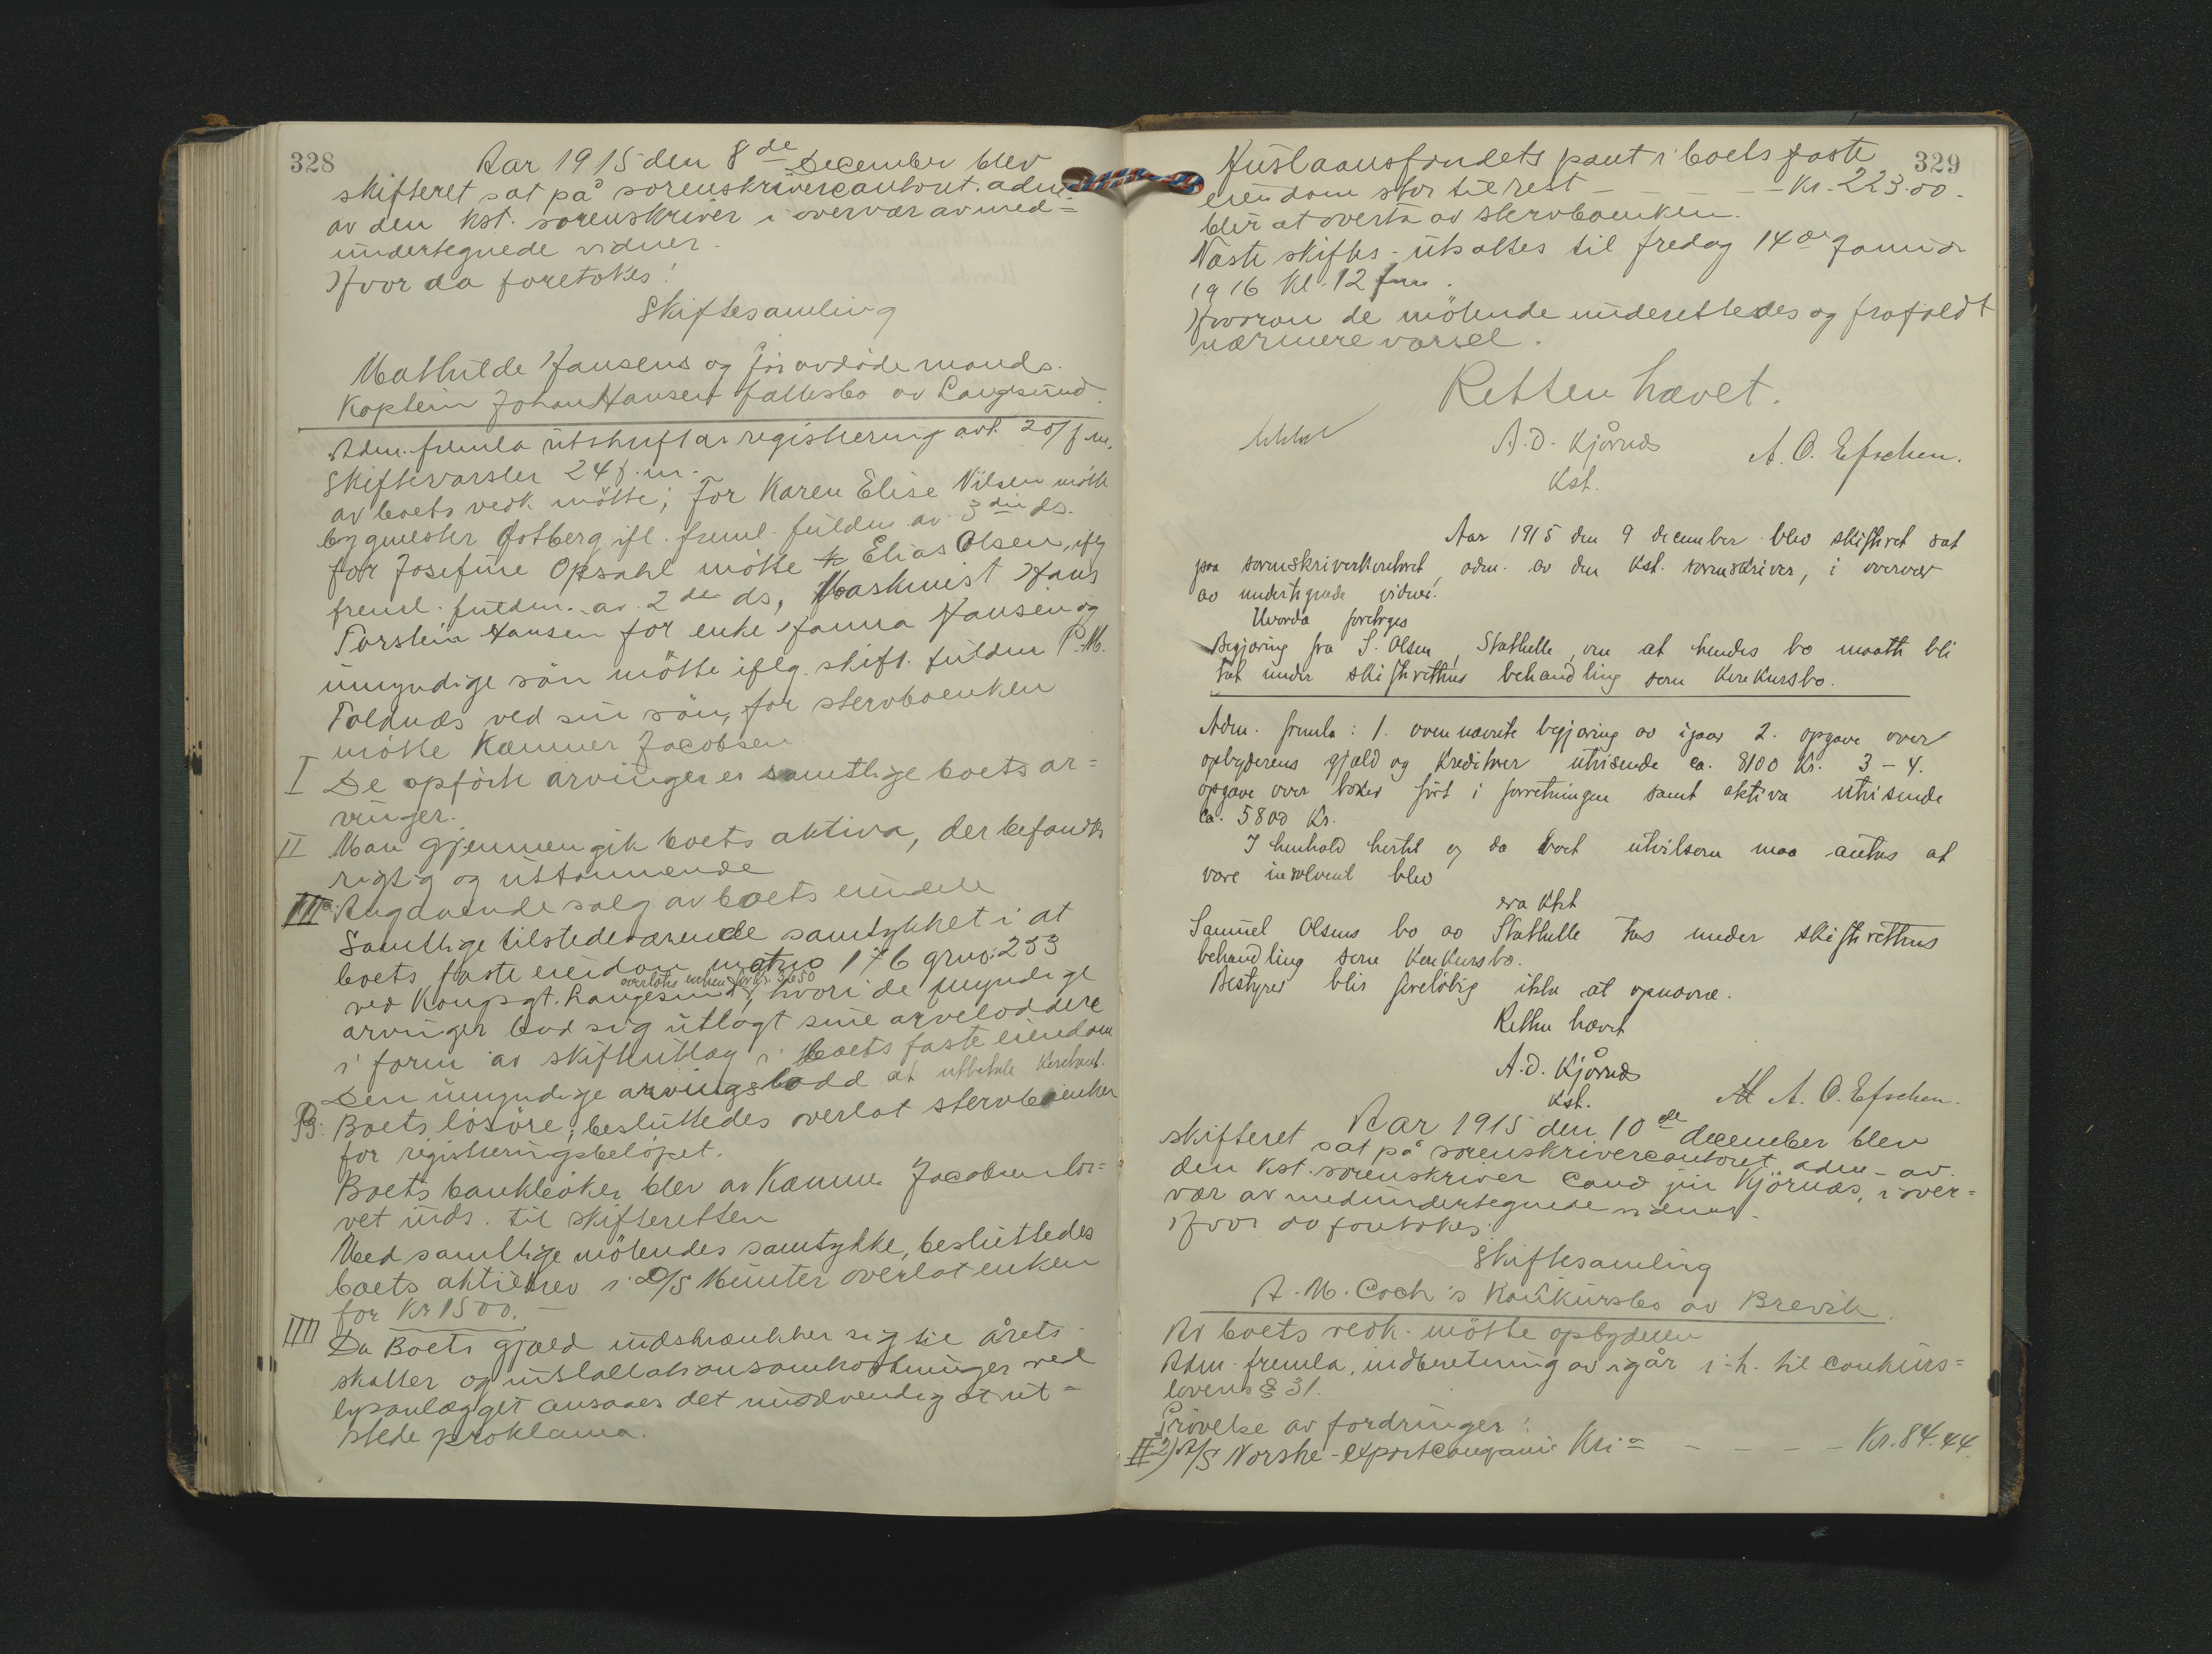 328
Aar 1915 den 8de December blev
skifteret sat på sorenskrivercontoret. adm
av den kst. sorenskriver i overvær av med=
undertegnede vidner.
Hvor da foretokes:
Skiftesamling
Mathilde Hansens og før avdøde mands.
Kaptein Johan Hansens fællesbo av Langesund.
Adm. fremla utskrift av registrering avh. 20/ f.m.
Skiftevarsler 24 f.m.
av boets vedk. mötte; For Karen Elise Nilsen mötte
bygmester Østberg ifl. freml. fuldm. av 3die ds.
for Josefine Opsahl mötte Elias Olsen, iflg
freml. fuldm. av 2de ds, Maskinist Hans
Torstein Hansen for enke Hanna Hansen og
umyndige sön mötte iflg. skift. fuldm P. M.
Toldnæs ved sin sön, for stervboenken
mötte Kæmner Jacobsen
I De opförte arvinger er samtlige boets ar=
vinger.
II Man gjennemgik boets aktiva, der befandtes
rigtig og uttømmende
IIIa. Angaaende salg av boets eiendele
Samtlige tilstedeværende samtykket i at
boets faste eiendom matno 176 grno: 233
overlotes enken for kr. 3650
ved Kongsgt. Langesund, hvori de myndige
arvinger bad sig utlagt sine arvelodder
i form av skifteutlæg i boets faste eiendom
Den umyndige arvingslodd at utbetale kontant.
B: Boets lösöre; besluttedes overlat stervboenken
for registreringsbelöpet.
Boets bankböker blev av Kæmner Jacobsen lo=
vet inds. til skifteretten
Med samtlige mötendes samtykke, besluttedes
boets aktiebrev i D/S Munter overlat enken
for Kr 1500.-
IIII Da Boets gjæld indskrænkker sig til årets
skatter og installationsomkostninger ved
lysanlægget ansaaes det unödvendig at ut=
stede proklama.
329
Huslaansfondets pant i boets faste
eiendom stor til rest - - - - - Kr. 223.00.
blir at overta av stervboenken.
Næste skiftes - utsattes til fredag 14de Januar
1916 kl. 12 fm.
Hvorom de mötende underettedes og frafaldt
nærmere varsel.
Retten hævet.
A. D. Kjörnæs
Kst.
A. O. Efschen.
Aar 1915 den 9 december blev skifteret sat
paa sorenskriverkontoret, adm. av den kst. sorenskriver, i overvær
av undertegnede vidner.
Hvorda foretoges
Begjæring fra S. Olsen, Stathelle, om at hendes bo maatte bli
tat under skifterettens behandling som konkursbo.
Adm. fremla: 1. ovennævnte begjæring av igaar 2. opgave over
opbyderens gjæld og kreditorer utvisende ca. 8100 kr. 3 - 4.
opgave over bøker fört i forretningen samt aktiva utvisende
ca. 5800 Kr.
I henhold hertil og da boet utvilsom maa antas at
være insolvent blev
Samuel Olsens bo av Stathelle tas under skifterettens
behandling som konkursbo.
Bestyrer blir foreløbig ikke at opnævne.
Retten hævet
A. D. Kjörnæs
Kst.
A. O. Efschen.
Aar 1915 den 10de december blev
skifteret sat på sorenskrivercontoret adm - av
den kst. sorenskriver Cand jur Kjörnæs, i over=
vær av medundertegnede vidner.
Hvor da foretokes:
Skiftesamling
A. M. Coch's Konkursbo av Brevik.
Av boets vedk. mötte opbyderen
Adm. fremla, indberetning av igår i-h. til conkurs=
lovens § 31.
Prövelse av fordringer:
II 2) A/S Norske-exportcompani Kria - - - - Kr. 84.44